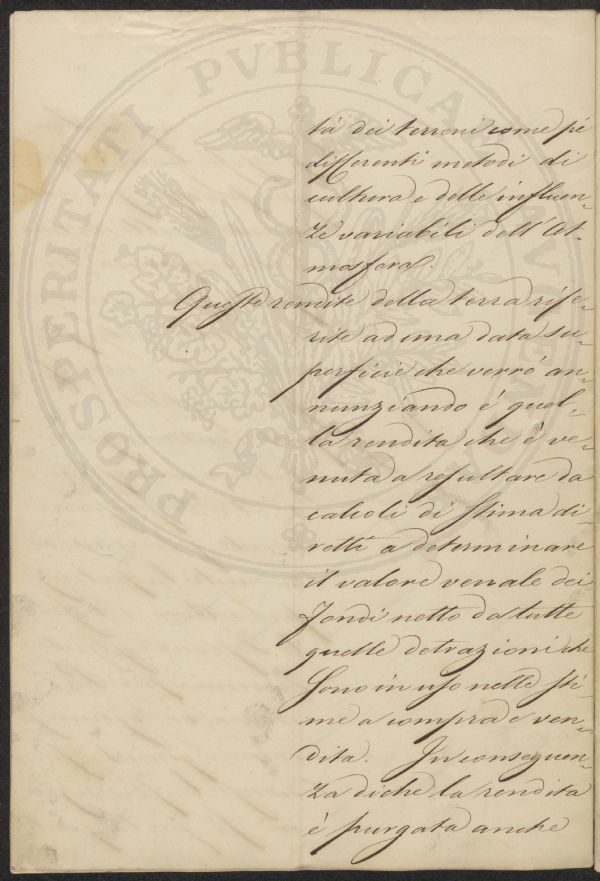 PROSPERITATI PVBLICAE AVGENDAE
tà dei terreni come pé
differenti metodi di
cultura e delle influen-
ze variabili dell'At-
mosfera.
Queste rendite della terra rife-
rite ad una data su-
perficie che verrò an-
nunziando é quel-
la rendita che é ve-
nuta a resultare da
calcoli di stima di-
retti a determinare
il valore venale dei
fondi netto da tutte
quelle detrazioni che
sono in uso nelle sti-
me a compra e ven-
dita. In conseguen-
za di che la rendita
é purgata anche